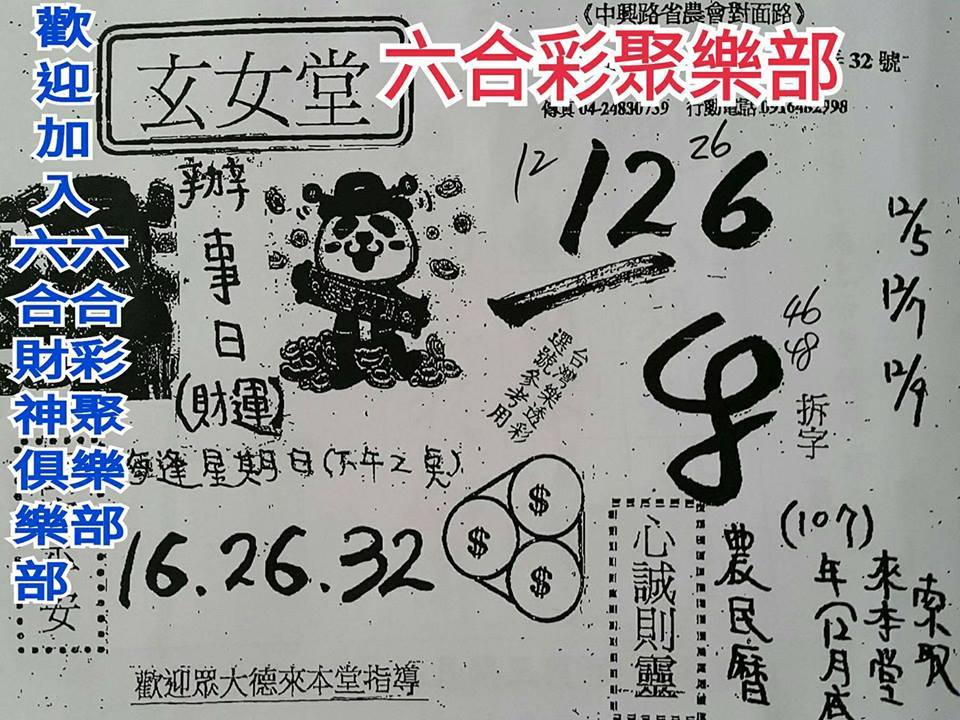 歡迎加入六合財神俱樂部
六合彩聚樂部
六合彩聚樂部
《中興路省農會對面路》
32號
玄女堂
傳真 04-24830739 行動電話
12
126
26
12/5
12/7
12/9
辦事日
(財運)
台灣樂透彩
選號參考用
46
48
拆字
每逢星期日(下午2奌)
16.26.32
$
$
$
安
心誠則靈
農民曆
(107)年
12月底
來本堂
索取
歡迎眾大德來本堂指導